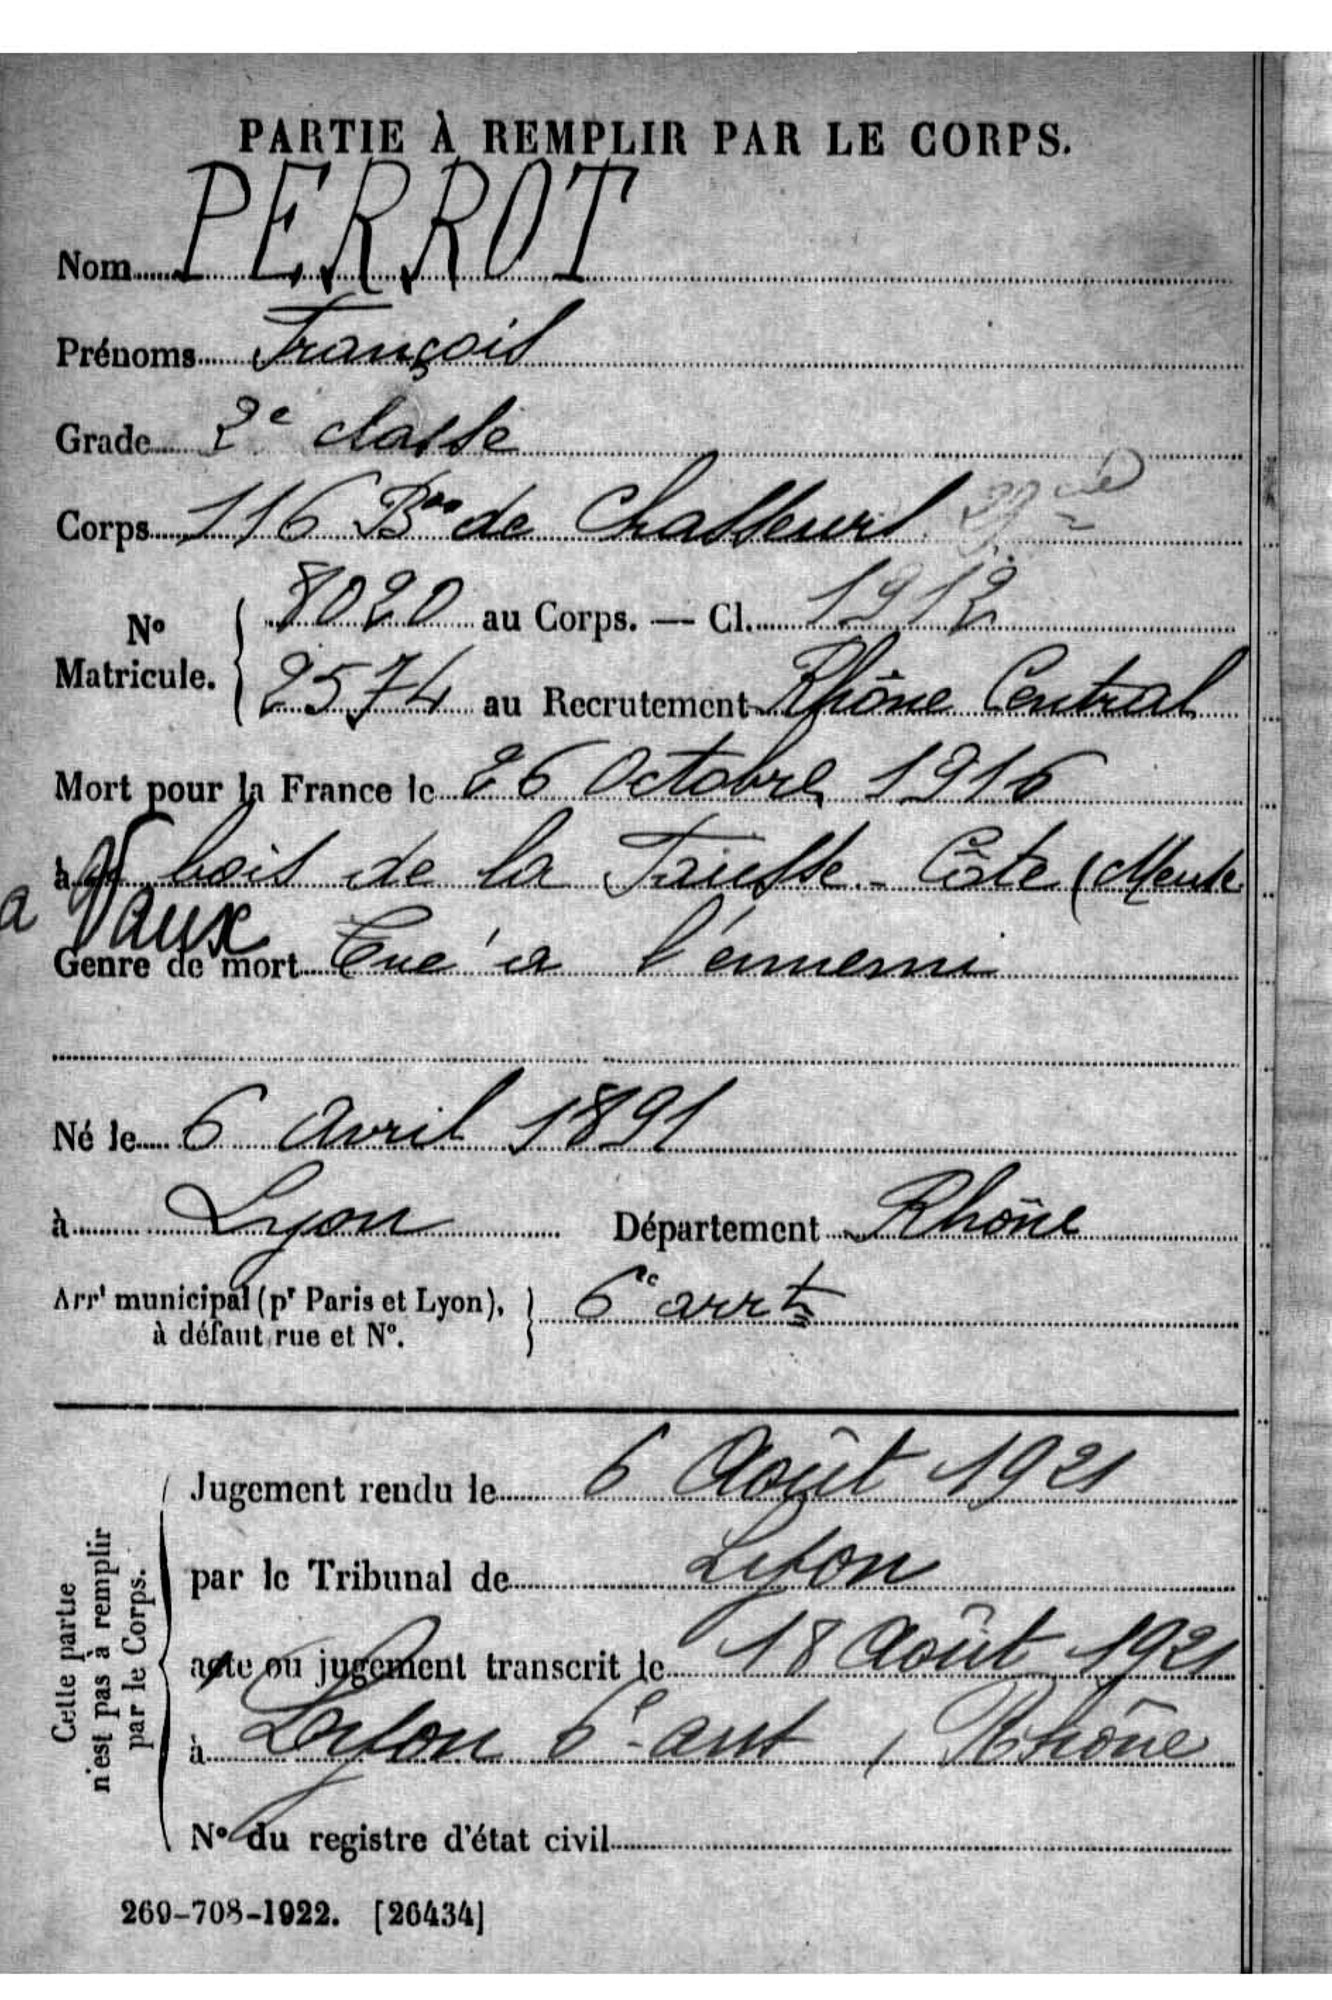 PARTIE À REMPLIR PAR LE CORPS.
Nom PERROT
Prénoms François
Grade 2e classe
Corps 116 Bon de Chasseurs
No Matricule. 8020 au Corps. — Cl. 1912
2574 au Recrutement Rhône Central
Mort pour la France le 26 Octobre 1916
à bois de la Fausse-Côte (Meuse
a Vaux
Genre de mort Tué à l'ennemi
Né le 6 Avril 1891
à Lyon Département Rhône
Arrt municipal (pr Paris et Lyon), 6e arrt
à défaut rue et No.
Cette partie n'est pas à remplir par le Corps.
Jugement rendu le 6 Août 1921
par le Tribunal de Lyon
acte ou jugement transcrit le 18 Août 1921
à Lyon 6e arrt, Rhône
No du registre d'état civil
269-708-1922. [26434]